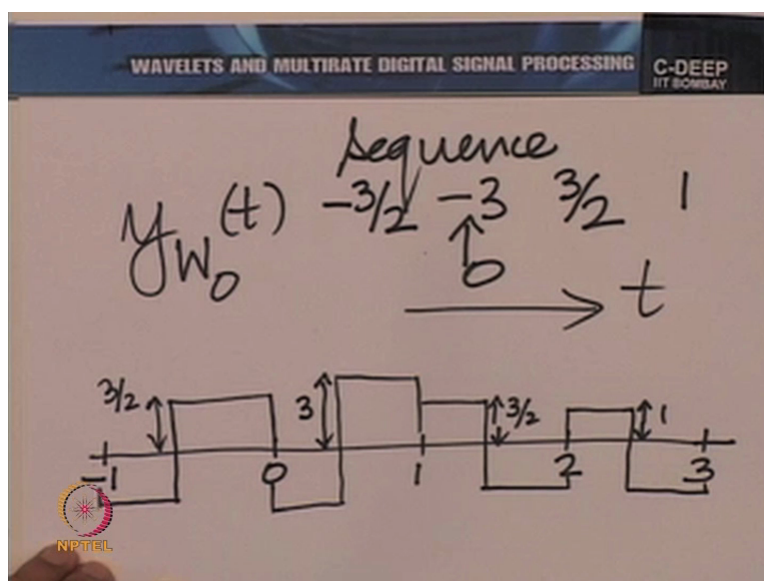 WAVELETS AND MULTIRATE DIGITAL SIGNAL PROCESSING
C-DEEP
IIT BOMBAY
sequence
y_{W_0}(t) -3/2 -3 3/2 1
↑
0
→ t
3/2 3 3/2 1
-1 0 1 2 3
NPTEL